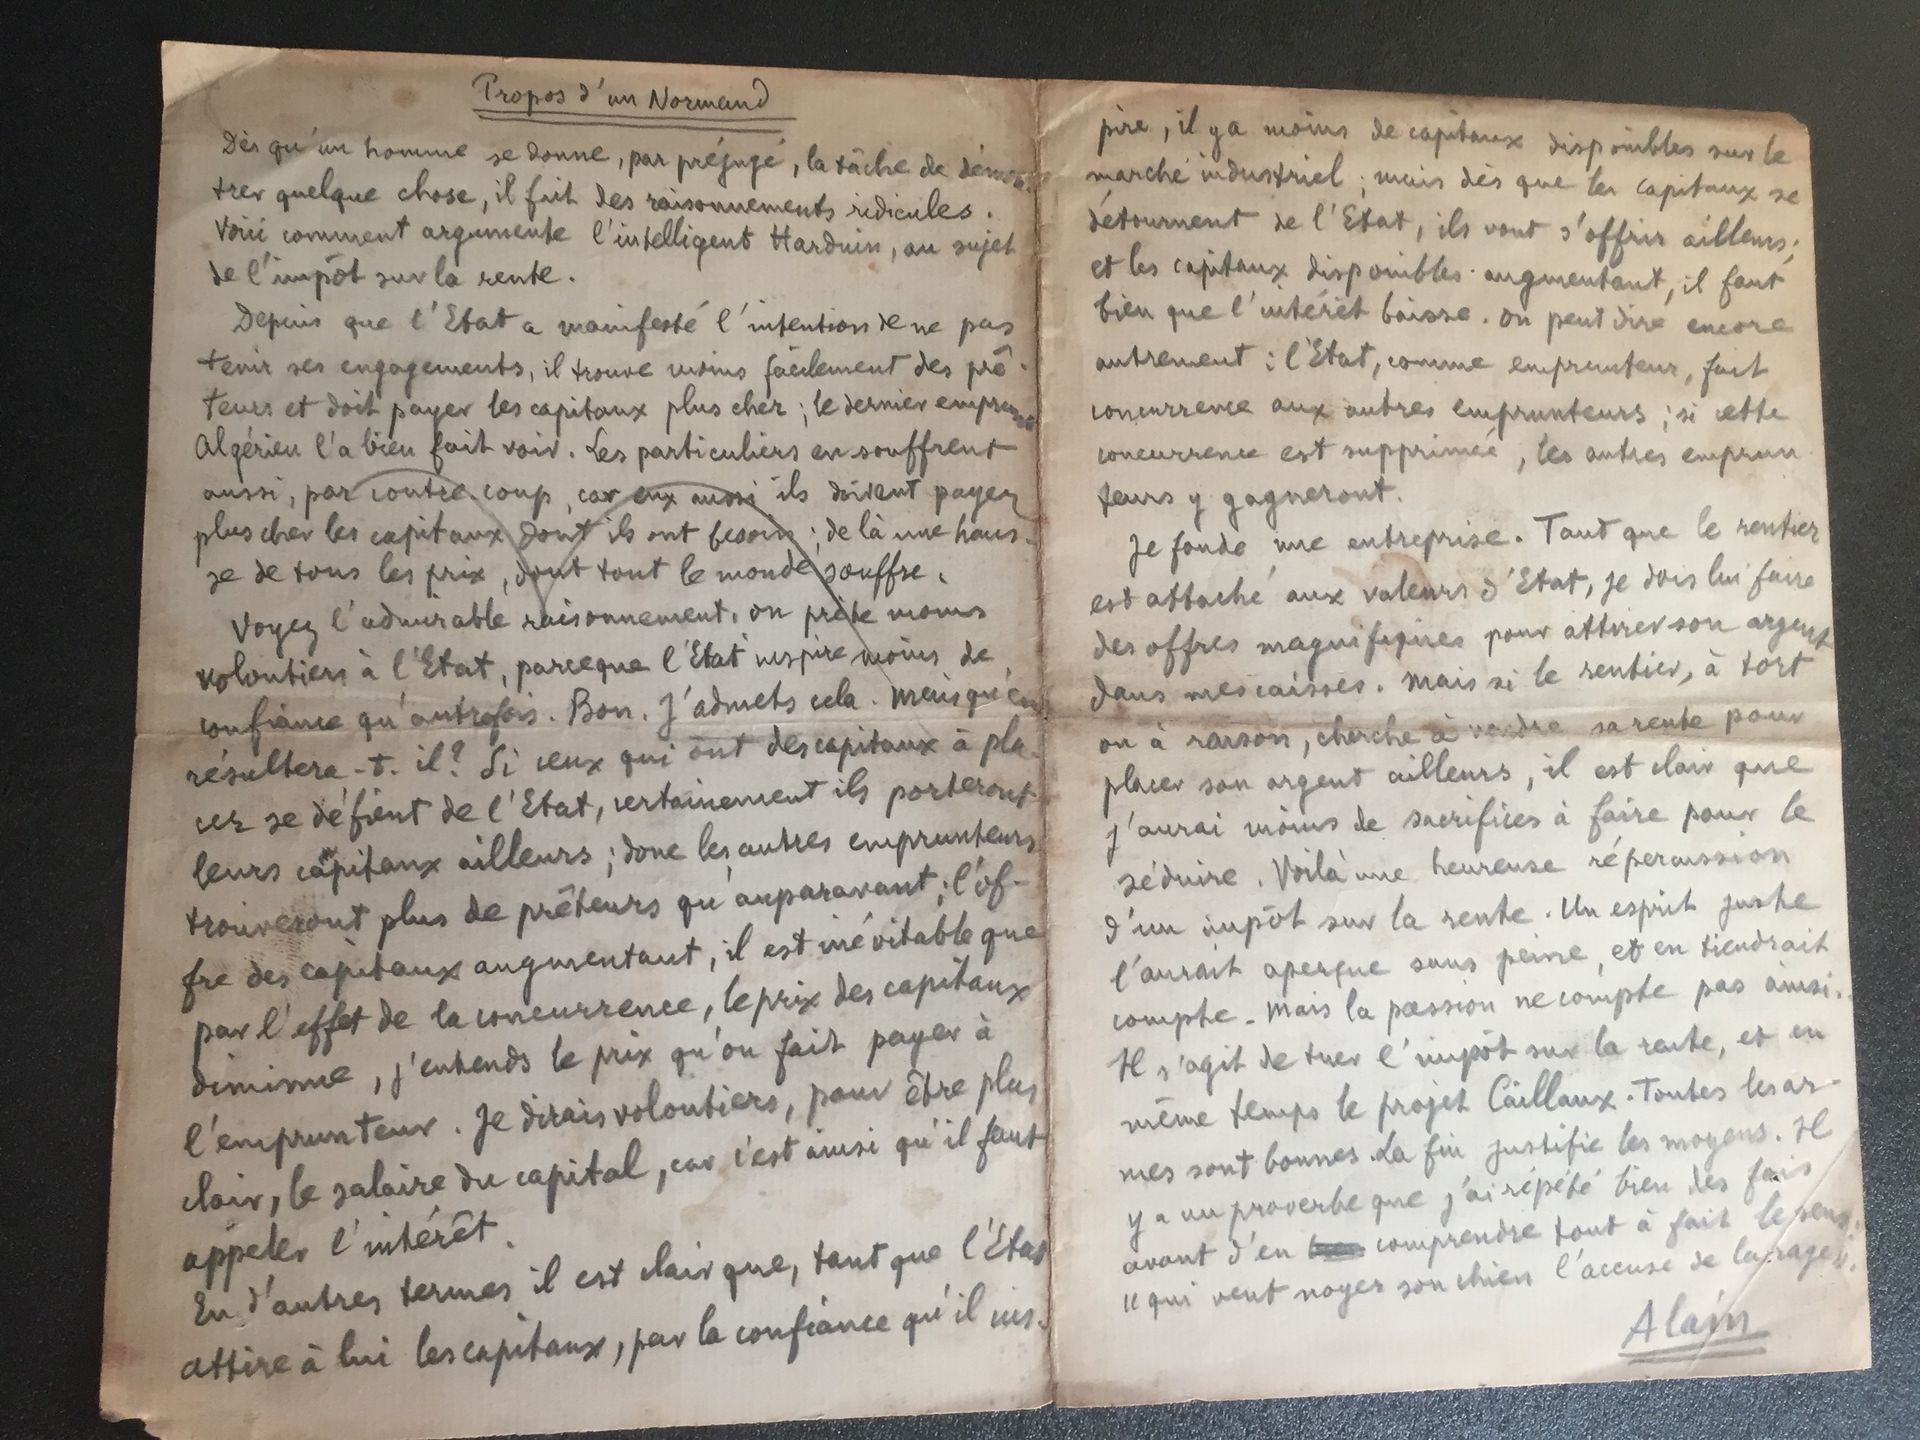 Propos d'un Normand
Dès qu'un homme se donne, par préjugé, la tâche de démon-
trer quelque chose, il fait des raisonnements ridicules.
Voici comment argumente l'intelligent Harduin, au sujet
de l'impôt sur la rente.
Depuis que l'Etat a manifesté l'intention de ne pas
tenir ses engagements, il trouve moins facilement des prê-
teurs et doit payer les capitaux plus cher ; le dernier emprunt
Algérien l'a bien fait voir. Les particuliers en souffrent
aussi, par contre coup, car eux aussi ils doivent payer
plus cher les capitaux dont ils ont besoin ; de là une haus-
se de tous les prix, dont tout le monde souffre.
Voyez l'admirable raisonnement. On prête moins
volontiers à l'Etat, parceque l'Etat inspire moins de
confiance qu'autrefois. Bon. J'admets cela. Mais qu'en
résultera-t-il? Si ceux qui ont des capitaux à pla-
cer se défient de l'Etat, certainement ils porteront
leurs capitaux ailleurs ; donc les autres emprunteurs
trouveront plus de prêteurs qu'auparavant ; l'of-
fre des capitaux augmentant, il est inévitable que
par l'effet de la concurrence, le prix des capitaux
diminue, j'entends le prix qu'on fait payer à
l'emprunteur. Je dirais volontiers, pour être plus
clair, le salaire du capital, car c'est ainsi qu'il faut
appeler l'intérêt.
En d'autres termes il est clair que, tant que l'Etat
attire à lui les capitaux, par la confiance qu'il ins-
pire, il y a moins de capitaux disponibles sur le
marché industriel ; mais dès que les capitaux se
détournent de l'Etat, ils vont s'offrir ailleurs ;
et les capitaux disponibles augmentant, il faut
bien que l'intérêt baisse. On peut dire encore
autrement : l'Etat, comme emprunteur, fait
concurrence aux autres emprunteurs ; si cette
concurrence est supprimée, les autres emprun
teurs y gagneront.
Je fonde une entreprise. Tant que le rentier
est attaché aux valeurs d'Etat, je dois lui faire
des offres magnifiques pour attirer son argent
dans mes caisses. Mais si le rentier, à tort
ou à raison, cherche à vendre sa rente pour
placer son argent ailleurs, il est clair que
j'aurai moins de sacrifices à faire pour le
séduire. Voilà une heureuse répercussion
d'un impôt sur la rente. Un esprit juste
l'aurait aperçue sans peine, et en tiendrait
compte. Mais la passion ne compte pas ainsi.
Il s'agit de tuer l'impôt sur la rente, et en
même temps le projet Caillaux. Toutes les ar-
mes sont bonnes. La fin justifie les moyens. Il
y a un proverbe que j'ai répété bien des fois
avant d'en comprendre tout à fait le sens :
"qui veut noyer son chien l'accuse de la rage".
Alain